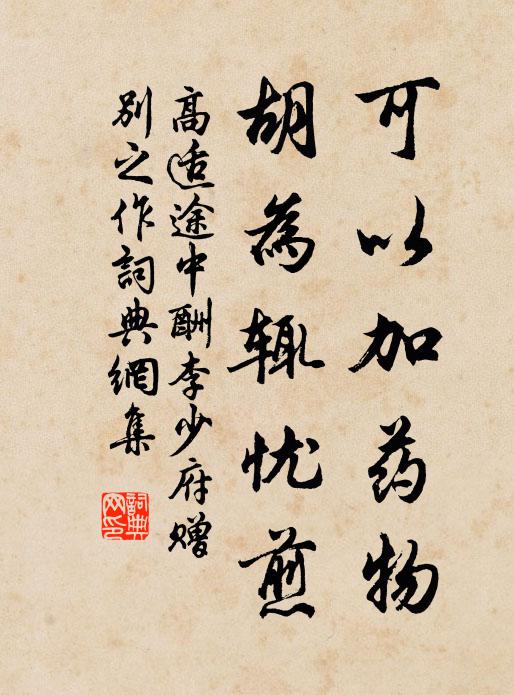 可以加药物
胡為辄忧煎
高适途中酬李少府赠
别之作詞典網集
詞典
网印